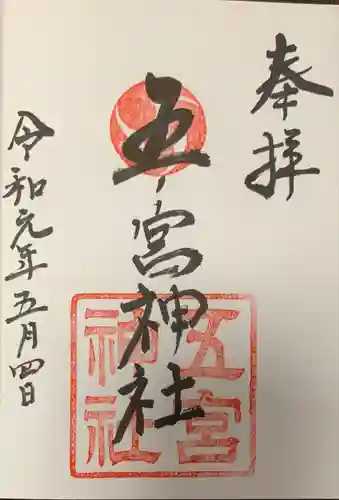 奉拝
五宮神社
五宮
神社
令和元年五月四日